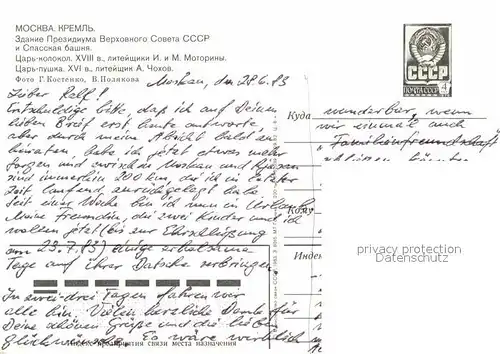 МОСКВА. КРЕМЛЬ.
Здание Президиума Верховного Совета СССР
и Спасская башня.
Царь-колокол. XVIII в., литейщики И. и М. Моторины.
Царь-пушка. XVI в., литейщик А. Чохов.
Фото Г. Костенко, В. Полякова
СССР
ПОЧТА СССР
Moskau, den 28.6.83
Lieber Ralf!
Entschuldige bitte, daß ich auf Deinen
lieben Brief erst heute antworte,
aber durch meine Absicht bald zu
heiraten habe ich jetzt etwas mehr
und zwischen Moskau und
sind immerhin 200 km, die ich in letzter
Zeit laufend zurückgelegt habe.
Seit einer Woche bin ich nun im Urlaub.
Meine Freundin, die zwei Kinder und ich
wollen jetzt (bis zur Eheschließung
am 23.7.83) einige erholsame
Tage auf ihrer Datscha verbringen.
In zwei-drei Tagen fahren wir
alle hin. Vielen herzliche Dank für
Deine schönen Grüße und die lieben
Glückwünsche. Es wäre wirklich
Куда
wunderbar, wenn
wir einmal auch
Familienfreundschaft
Кому
Индекс
privacy protection
предприятия связи места назначения